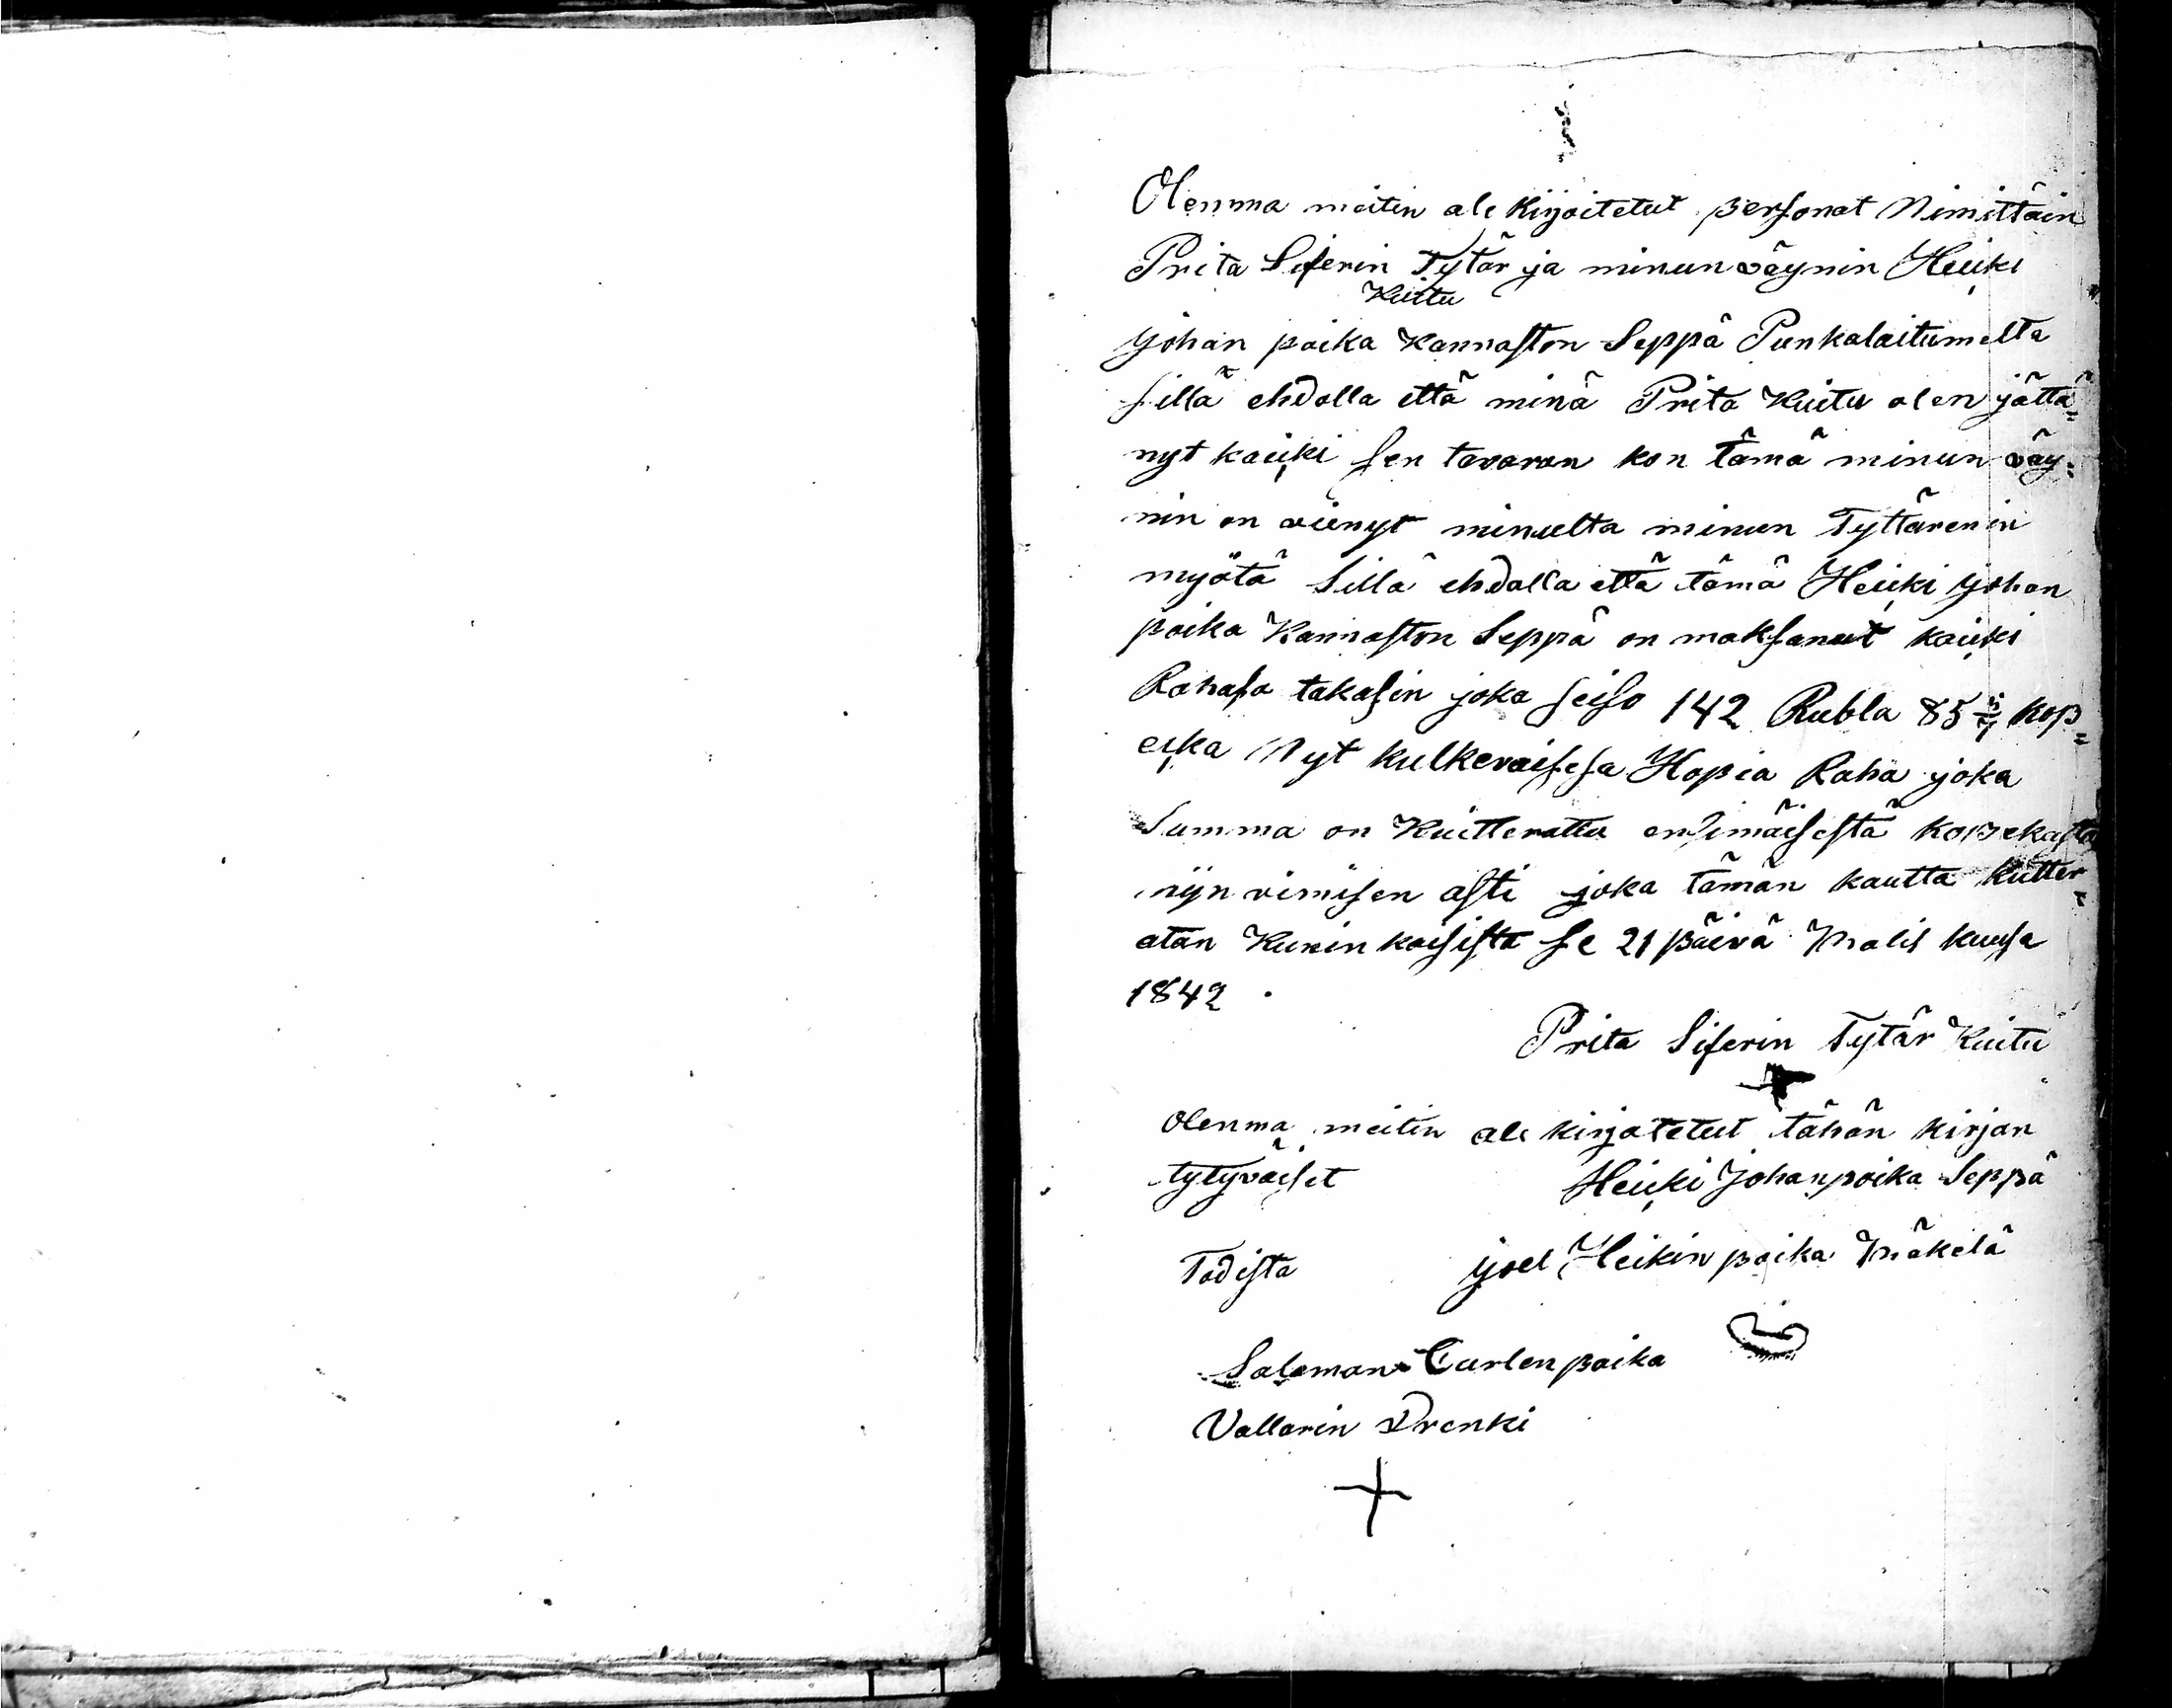 Olemma meitin ale kirjoitetut personat Nimittäin
Prita Siferin Tytär ja minun väynin Heiki
Kuitu
Johan poika Kannaston Seppä Punkalaitumelta
sillä ehdolla että minä Prita Kuitu olen jättä=
nyt kaiki sen tavaran kon tämä minun väy=
nin on vienyt minulta minun Tyttärenin
myötä sillä ehdolla että tämä Heiki Johan
poika Kannaston Seppä on maksanut kaiki
Rahasa takasin joka seiso 142 Rubla 85 kop=
eika Nyt kulkevaisesa Hopia Raha joka
Summa on Kuitterattu ensimäisestä kopekasta
niin vimisen asti joka tämän kautta kuitter=
atan Kunin kaisista se 21 päivä Malis kuusa
1842.
Prita Siferin Tytär Kuitu
Olemma meitin ale kirjotetut tähän kirjan
tytyväiset Heiki Johanpoika Seppä
Todista Joel Heikin poika Mäkelä
Saloman Carlen poika
Vallarin Drenki